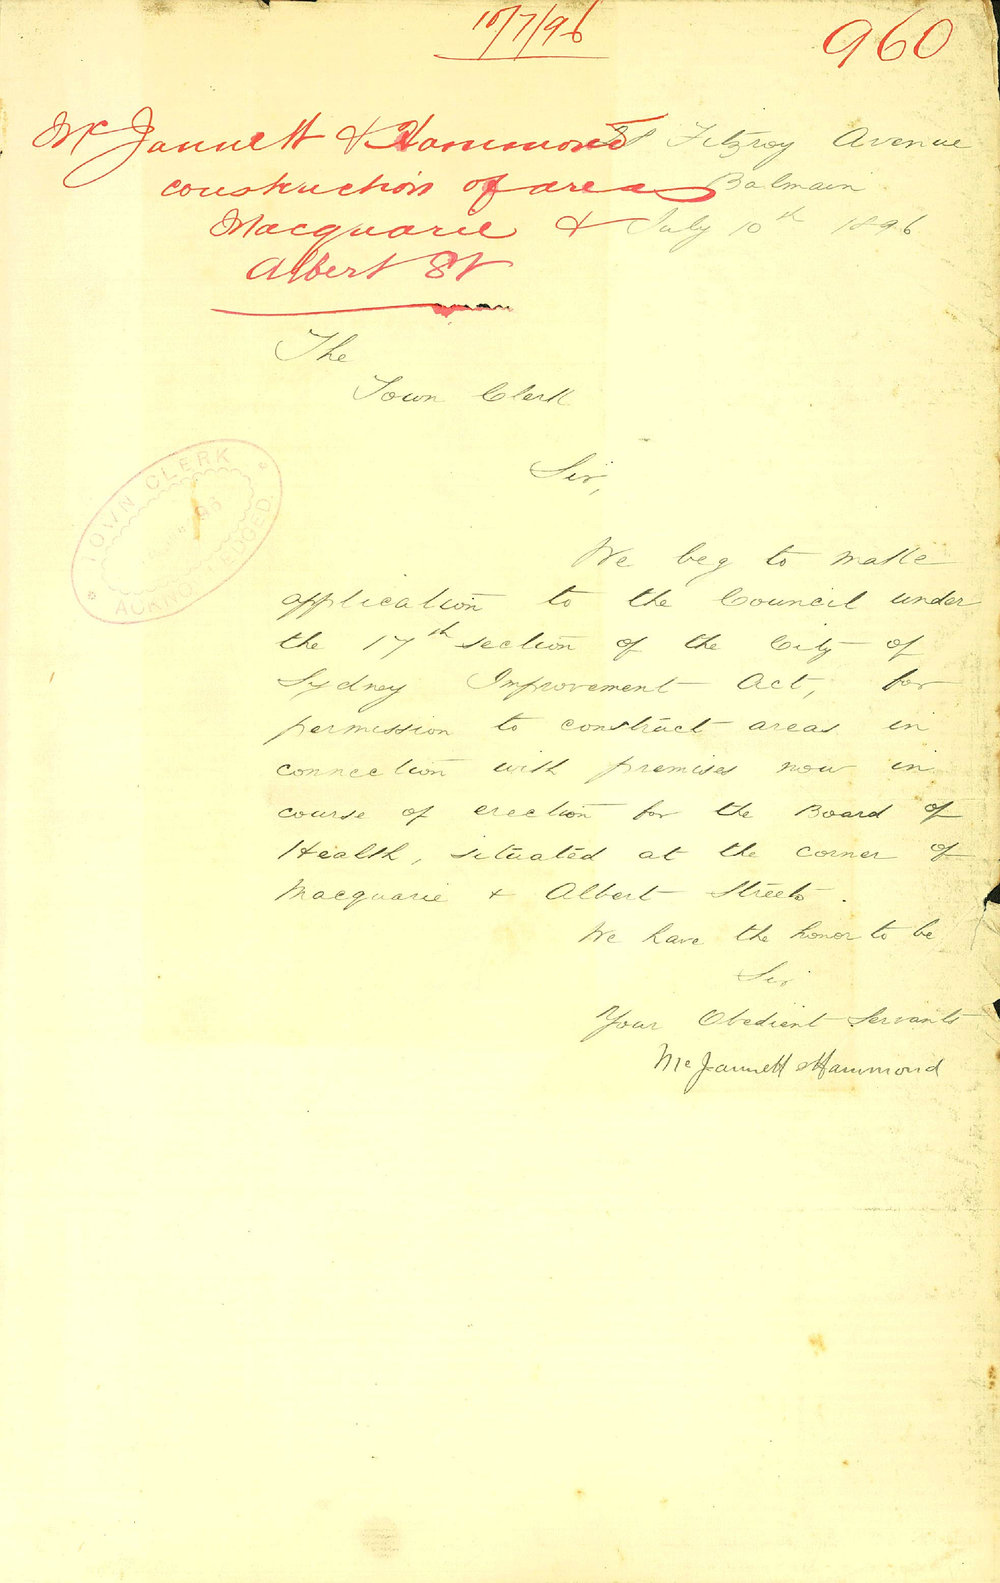 10/7/96
960
McJannett & Hammond
construction of areas
Macquarie &
Albert St
Fitzroy Avenue
Balmain
July 10th 1896
The
Town Clerk
Sir,
TOWN CLERK
96
ACKNOWLEDGED
We beg to make
application to the Council under
the 17th section of the City of
Sydney Improvement Act, for
permission to construct areas in
connection with premises now in
course of erection for the Board of
Health, situated at the corner of
Macquarie & Albert Streets.
We have the honor to be
Sir
Your Obedient Servants
McJannett & Hammond